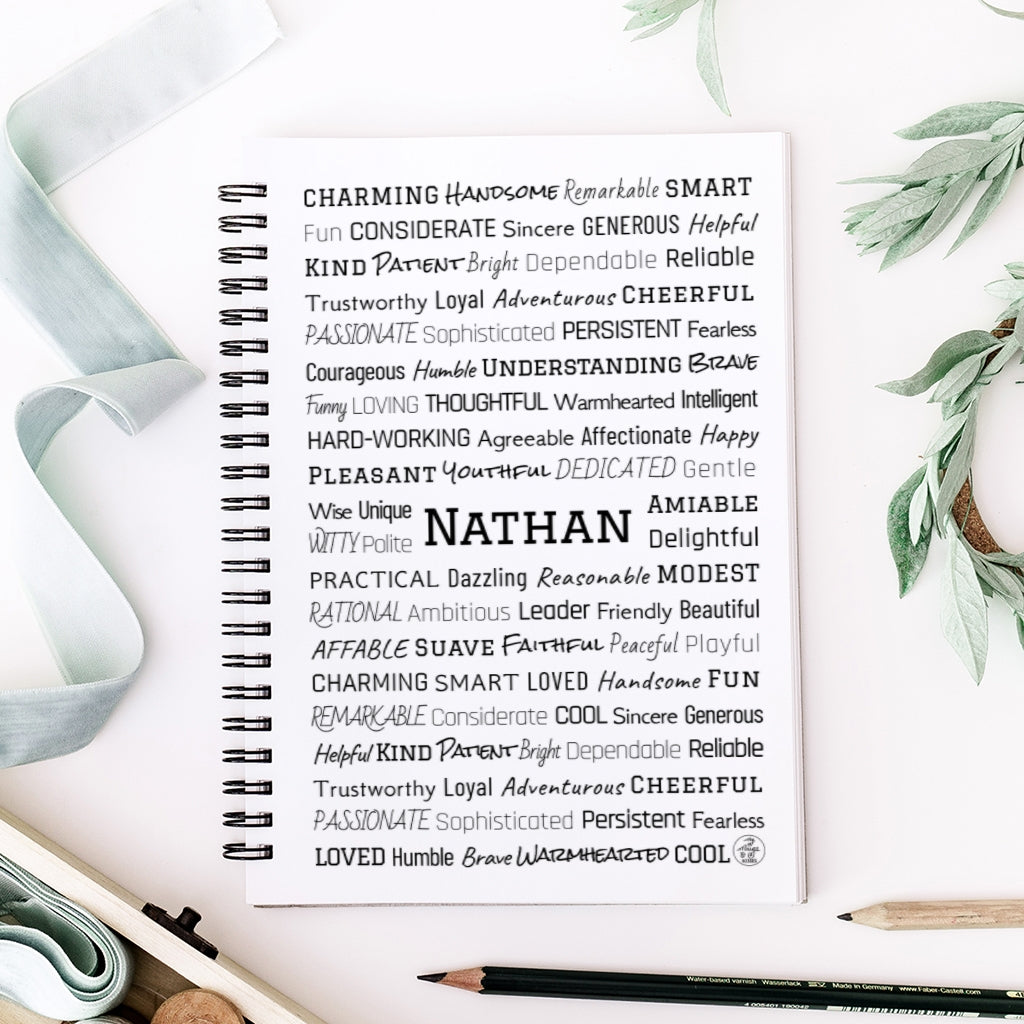 CHARMING HANDSOME Remarkable SMART
Fun CONSIDERATE Sincere GENEROUS Helpful
KIND PATIENT Bright Dependable Reliable
Trustworthy Loyal Adventurous CHEERFUL
PASSIONATE Sophisticated PERSISTENT Fearless
Courageous Humble UNDERSTANDING BRAVE
Funny LOVING THOUGHTFUL Warmhearted Intelligent
HARD-WORKING Agreeable Affectionate Happy
PLEASANT YOUTHFUL DEDICATED Gentle
Wise Unique
WITTY Polite
NATHAN
AMIABLE
Delightful
PRACTICAL Dazzling Reasonable MODEST
RATIONAL Ambitious Leader Friendly Beautiful
AFFABLE SUAVE FAITHFUL Peaceful Playful
CHARMING SMART LOVED Handsome FUN
REMARKABLE Considerate COOL Sincere Generous
Helpful KIND PATIENT Bright Dependable Reliable
Trustworthy Loyal Adventurous CHEERFUL
PASSIONATE Sophisticated Persistent Fearless
LOVED Humble Brave WARMHEARTED COOL
Water-based varnish Wasserlack Made in Germany www.Faber-Castell.com